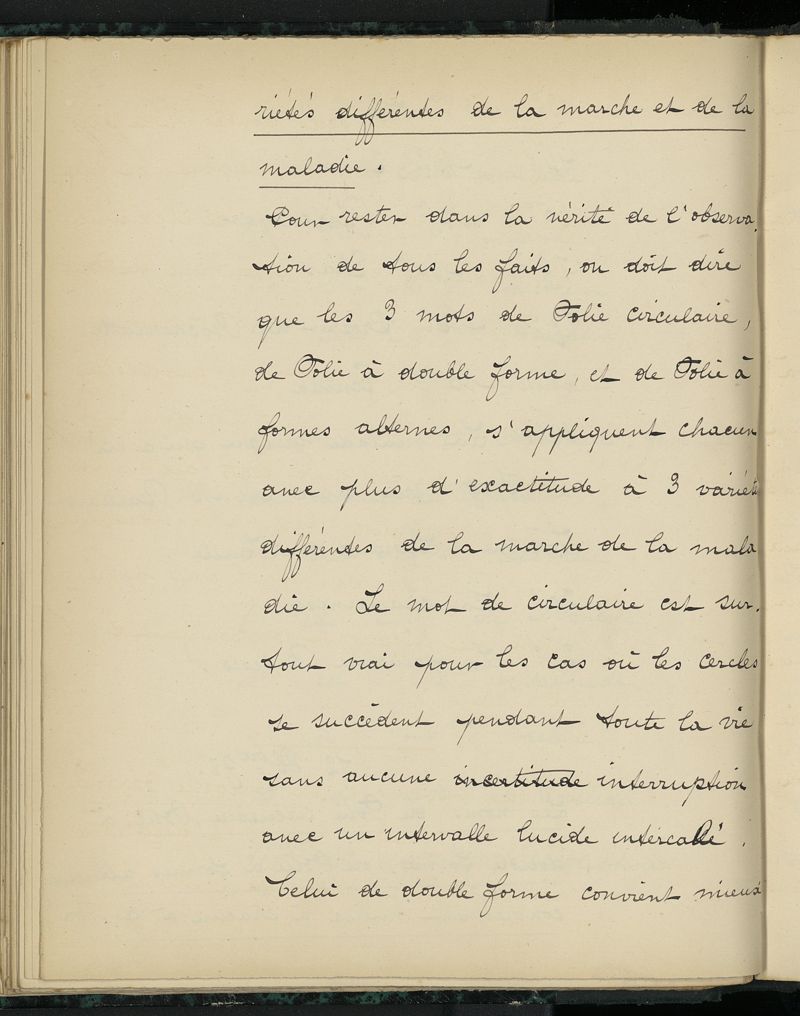 riétés différentes de la marche et de la
maladie.
Pour rester dans la vérité de l'observa-
tion de tous les faits, on doit dire
que les 3 mots de Folie circulaire,
de Folie à double forme, et de Folie à
formes alternes, s'appliquent chacun
avec plus d'exactitude à 3 variétés
différentes de la marche de la mala
die. Le mot de circulaire est sur-
tout vrai pour les cas où les cercles
se succèdent pendant toute la vie
sans aucune incertitude interruption
avec un intervalle lucide intercalé.
Celui de double forme convient mieux